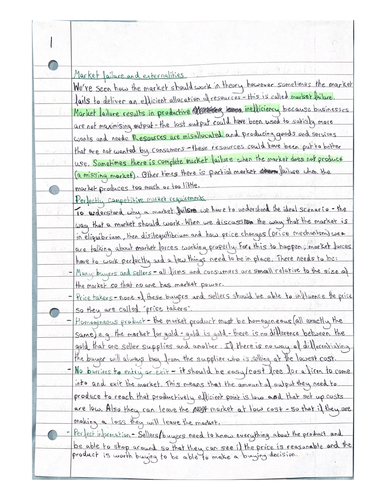 1
Market failure and externalities
We've seen how the market should work in theory however sometimes the market
fails to deliver an efficient allocation of resources - this is called market failure.
Market failure results in productive inefficiency because businesses
are not maximising output - the lost output could have been used to satisfy more
wants and needs. Resources are misallocated and producing goods and services
that are not wanted by consumers - these resources could have been put to better
use. Sometimes there is complete market failure when the market does not produce
(a missing market). Other times there is partial market failure when the
market produces too much or too little.
Perfectly competitive market requirements
To understand why a market fails we have to understand the ideal scenario - the
way that a market should work. When we discuss the way that the market is
in equilibrium, then disequilibrium and how prices change (price mechanism) we
are talking about market forces working properly. For this to happen, market forces
have to work perfectly and a few things need to be in place. There needs to be:
- Many buyers and sellers - all firms and consumers are small relative to the size of
the market so that no one has market power.
- Price takers - none of these buyers and sellers should be able to influence the price
so they are called 'price takers'.
- Homogeneous product - the market product must be homogeneous (all exactly the
same) e.g. the market for gold - gold is gold - there is no difference between the
gold that one seller supplies and another. If there is no way of differentiating
the buyer will always buy from the supplier who is selling at the lowest cost.
- No barriers to entry or exit - it should be easy/cost free for a firm to come
into and exit the market. This means that the amount of output they need to
produce to reach that productively efficient point is low and that set up costs
are low. Also they can leave the market at low cost - so that if they are
making a loss they will leave the market.
- Perfect information - Sellers/buyers need to know everything about the product and
be able to shop around so that they can see if the price is reasonable and the
product is worth buying to be able to make a buying decision.